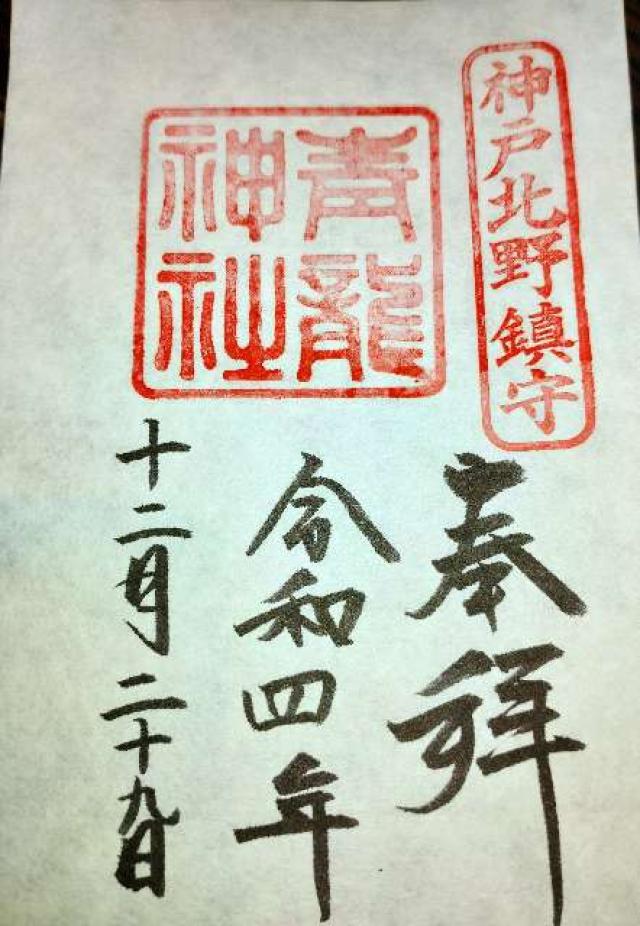 神戸北野鎮守
奉拝
青龍
神社
令和四年
十二月二十九日